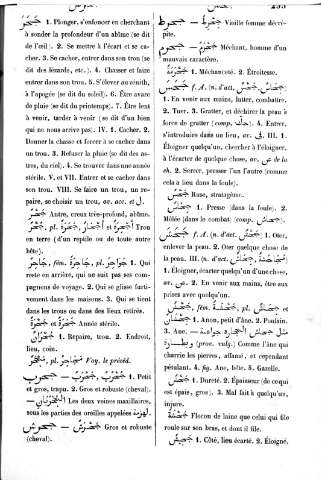 جَحَرَ 1. Plonger, s'enfoncer en cherchant
à sonder la profondeur d'un abîme (se dit
de l'œil). 2. Se mettre à l'écart et se ca-
cher. 3. Se cacher, entrer dans son trou (se
dit des lézards, etc.). 4. Chasser et faire
entrer dans son trou. 5. S'élever au zénith,
à l'apogée (se dit du soleil). 6. Être avare
de pluie (se dit du printemps). 7. Être lent
à venir, tarder à venir (se dit d'un bien
qui ne nous arrive pas). IV. 1. Cacher. 2.
Donner la chasse et forcer à se cacher dans
un trou. 3. Refuser la pluie (se dit des as-
tres, du ciel). 4. Se trouver dans une année
stérile. V. et VII. Entrer et se cacher dans
son trou. VIII. Se faire un trou, un re-
paire, se choisir un trou, av. acc. et لِ.
جَحْرٌ Antre, creux très-profond, abîme.
جُحْرٌ, pl. أَجْحَارٌ et جِحَرَةٌ Trou
en terre (d'un reptile ou de toute autre
bête).
جَاحِرٌ, fém. جَاحِرَةٌ, pl. جَوَاحِرُ 1. Qui
reste en arrière, qui ne suit pas ses com-
pagnons de voyage. 2. Qui se glisse furti-
vement dans les maisons. 3. Qui se tient
dans les trous ou dans des lieux retirés.
جَحْرَةٌ et جَحَرَةٌ Année stérile.
جُحْرَانٌ 1. Repaire, trou. 2. Endroit,
lieu, coin.
مَجْحَرٌ, pl. مَجَاحِرُ Voy. le précéd.
جَحْرَبٌ — جُحْرُبٌ 1. Petit
et gros, trapu. 2. Gros et robuste (cheval).
الجُحْرُبَانِ — Les deux veines maxillaires,
sous les parties des oreilles appelées لِهْزِمَةٌ.
جَحْرَشٌ — Gros et robuste
(cheval).
جَحْرَطٌ — Vieille femme décré-
pite.
جَحْرَمٌ — Méchant, homme d'un
mauvais caractère.
جَحْرَمَةٌ 1. Méchanceté. 2. Étroitesse.
جَحَسَ, f. A. (n. d'act. جَحْسٌ)
1. En venir aux mains, lutter, combattre.
2. Tuer. 3. Gratter, et déchirer la peau à
force de gratter. 4. Entrer,
s'introduire dans un lieu, av. فِي. III. 1.
Éloigner quelqu'un, chercher à l'éloigner,
à l'écarter de quelque chose, av. عن de la
ch. 2. Serrer, presser l'un l'autre (comme
cela à lieu dans la foule).
جِحَاسٌ Ruse, stratagème.
جِحَاسٌ 1. Presse (dans la foule). 2.
Mêlée (dans le combat) (comp. جِحَاشٌ).
جَحَشَ f. A. (n. d'act. جَحْشٌ) 1. Oter,
enlever la peau. 2. Oter quelque chose de
la peau. III. (n. d'act. جِحَاشٌ, مُجَاحَشَةٌ)
1. Éloigner, écarter quelqu'un d'une chose,
av. عن. 2. En venir aux mains, être aux
prises avec quelqu'un.
جَحْشٌ, fém. جَحْشَةٌ, pl. جِحَاشٌ et
جِحْشَانٌ 1. Anon, petit d'âne. 2. Poulain.
3. Ane. —
(prov. vulg.) Comme l'âne qui
charrie les pierres, affamé, et cependant
pétulant. 4. fig. Ane, bête. 5. Gazelle.
جَحْشٌ 1. Dureté. 2. Épaisseur (de coqui
est épais, gros). 3. Mal fait à quelqu'un,
injure.
جَحْشَةٌ Flocon de laine que celui qui file
roule sur son bras, et dont il file.
جَحِيشٌ 1. Côté, lieu écarté. 2. Éloigné,